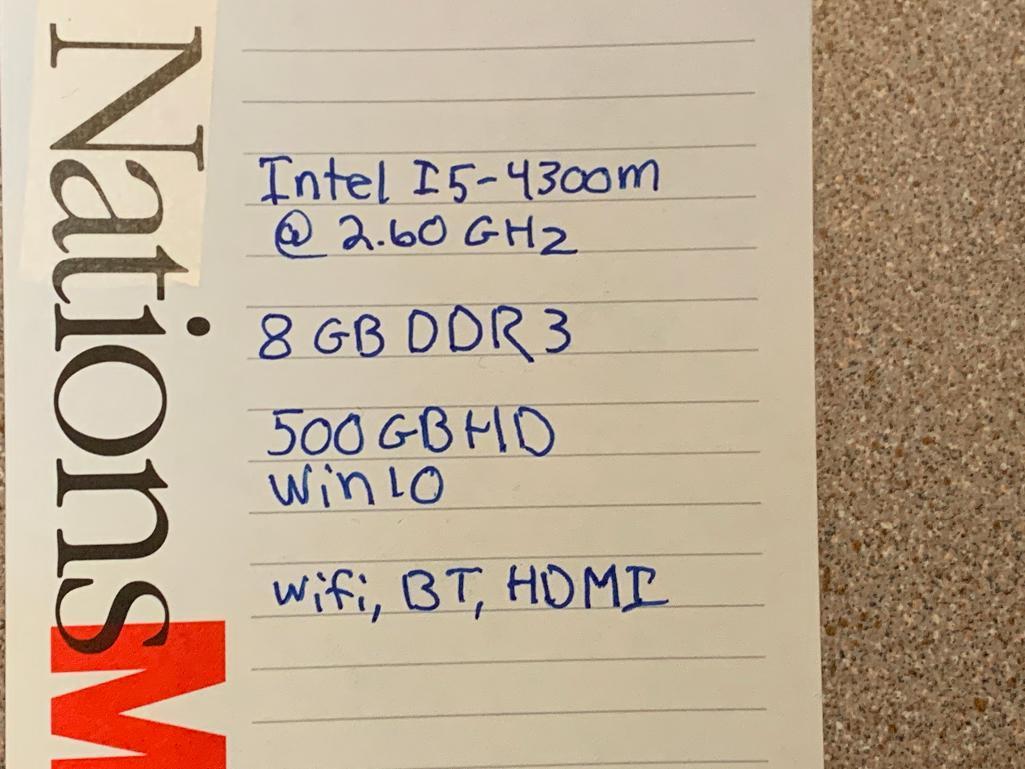 Nations
M
Intel I5-4300m
@ 2.60 GHz
8 GB DDR3
500 GB HD
Win 10
Wifi, BT, HDMI